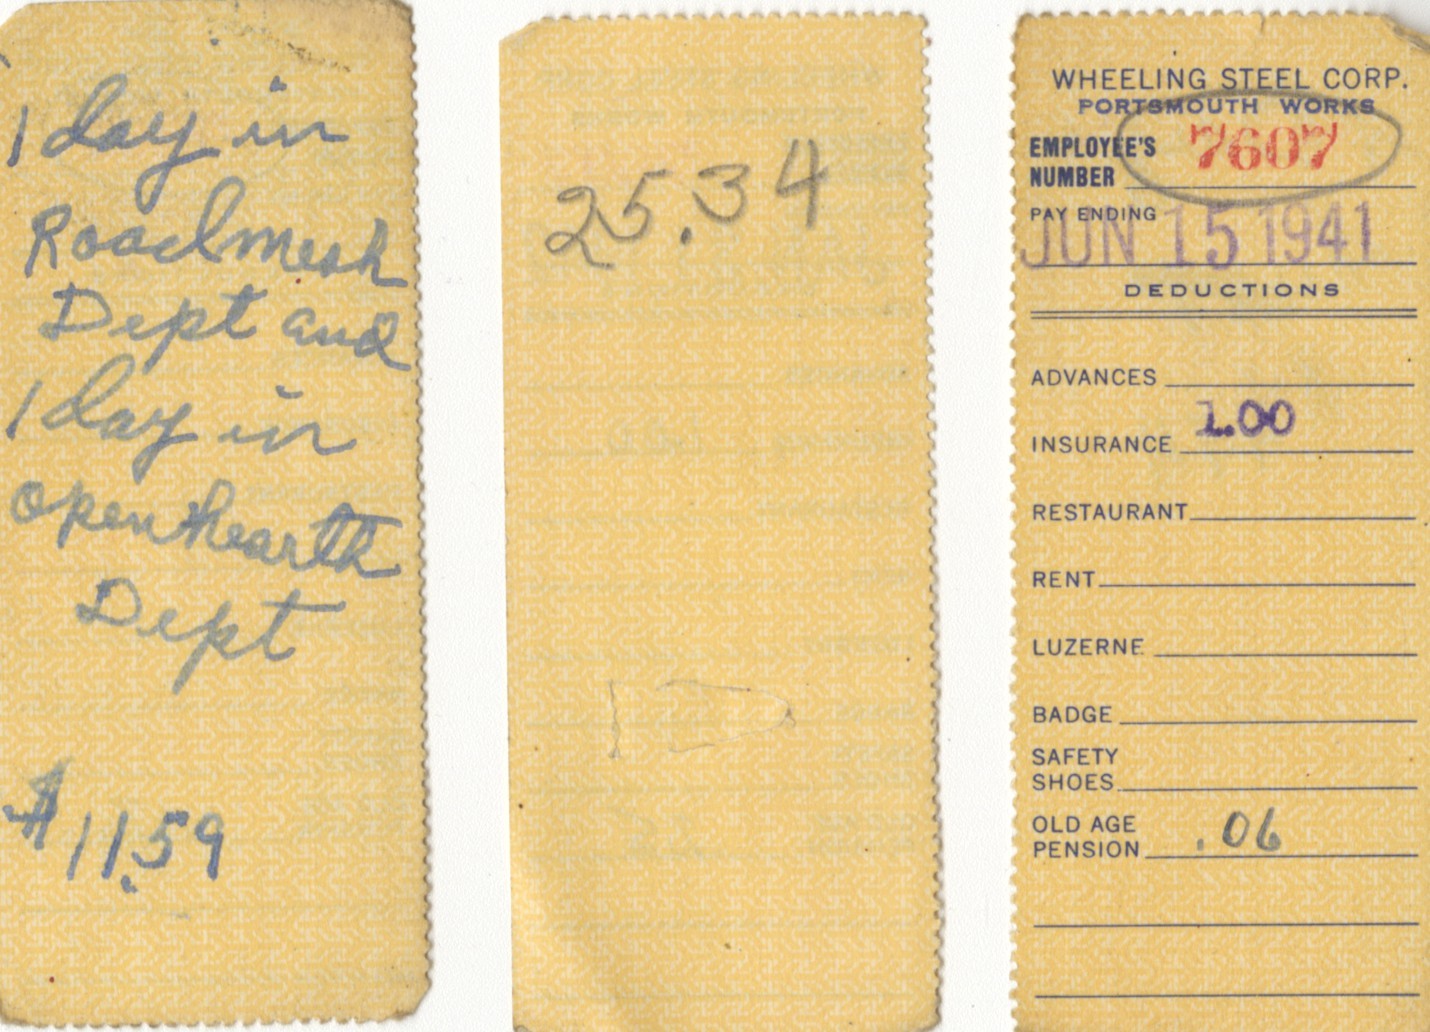 1 day in
Roadmesh
Dept and
1 day in
open hearth
Dept
$11.59
25.34
WHEELING STEEL CORP.
PORTSMOUTH WORKS
EMPLOYEE'S
NUMBER 7607
PAY ENDING
JUN 15 1941
DEDUCTIONS
ADVANCES
INSURANCE 1.00
RESTAURANT
RENT
LUZERNE
BADGE
SAFETY
SHOES
OLD AGE
PENSION .06